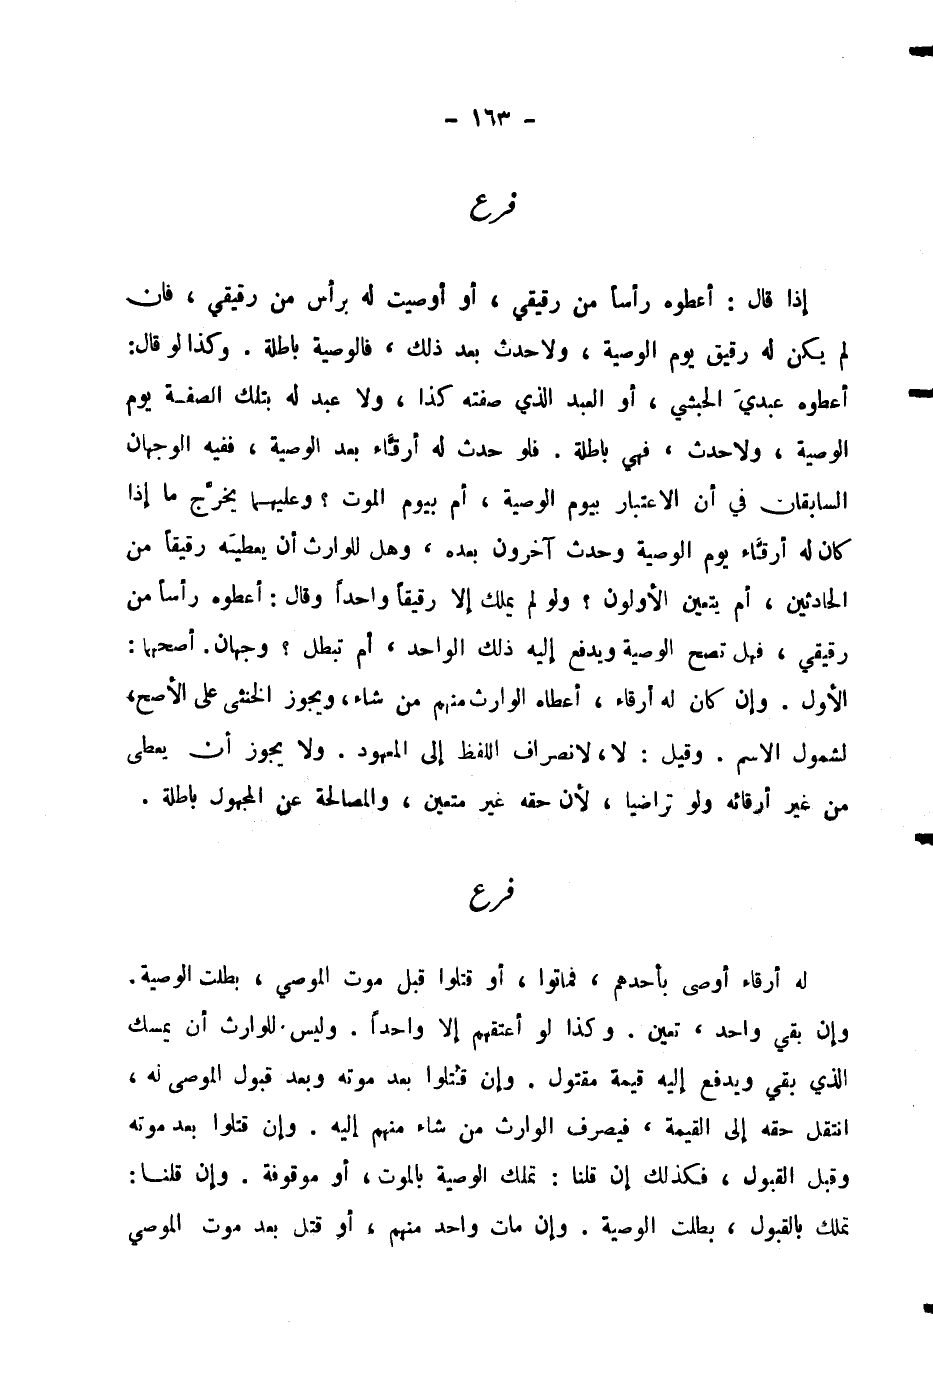 - ١٦٣ -
فرع
إذا قال : أعطوه رأساً من رقيقي ، أو أوصيت له برأس من رقيقي ، فان
لم يكن له رقيق يوم الوصية ، ولاحدث بعد ذلك ، فالوصية باطلة . وكذا لو قال:
أعطوه عبديَ الحبشي ، أو العبد الذي صفته كذا ، ولا عبد له بتلك الصفـة يوم
الوصية ، ولاحدث ، فهي باطلة . فلو حدث له أرقَّاء بعد الوصية ، ففيه الوجهان
السابقان في أن الاعتبار بيوم الوصية ، أم بيوم الموت ؟ وعليهـما يخرَّج ما إذا
كان له أرقَّاء يوم الوصية وحدث آخرون بعده ، وهل للوارث أن يعطيَه رقيقاً من
الحادثين ، أم يتعين الأولون ؟ ولو لم يملك إلا رقيقاً واحداً وقال : أعطوه رأساً من
رقيقي ، فهل تصح الوصية ويدفع إليه ذلك الواحد ، أم تبطل ؟ وجهان. أصحهما :
الأول . وإن كان له أرقاء ، أعطاه الوارث منهم من شاء، ويجوز الخنثى على الأصح،
لشمول الاسم . وقيل : لا، لانصراف اللفظ إلى المعهود . ولا يجوز أن يعطى
من غير أرقائه ولو تراضيا ، لأن حقه غير متعين ، والمصالحة عن المجهول باطلة .
فرع
له أرقاء أوصى بأحدهم ، فماتوا ، أو قتلوا قبل موت الموصي ، بطلت الوصية .
وإن بقي واحد ، تعين . وكذا لو أعتقهم إلا واحداً . وليس للوارث أن يمسك
الذي بقي ويدفع إليه قيمة مقتول . وإن قُتلوا بعد موته وبعد قبول الموصى له ،
انتقل حقه إلى القيمة ، فيصرف الوارث من شاء منهم إليه . وإن قتلوا بعد موته
وقبل القبول ، فكذلك إن قلنا : تملك الوصية بالموت، أو موقوفة . وإن قلنـا :
تملك بالقبول ، بطلت الوصية . وإن مات واحد منهم ، أو قتل بعد موت الموصي